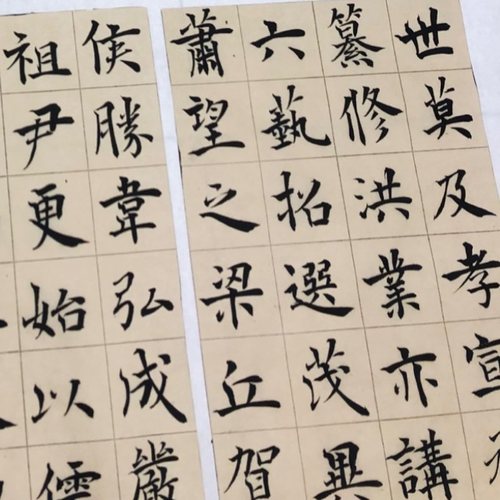 世莫及孝宣
纂修洪業亦講
六藝招選茂異
蕭望之梁丘賀
侯勝韋弘成嚴
祖尹更始以儒